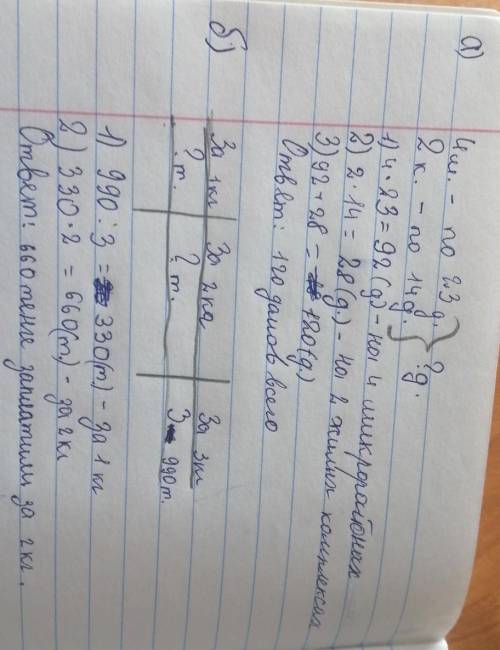 а)
4 м. - по 23 д. } ? д.
2 к. - по 14 д.
1) 4 · 23 = 92 (д.) - на 4 микрорайонах
2) 2 · 14 = 28 (д.) - на 2 жилых комплексах
3) 92 + 28 = 120 (д.)
Ответ: 120 домов всего
б)
За 1 кг За 2 кг За 3 кг
? т. ? т. 990 т.
1) 990 : 3 = 330 (т) - за 1 кг
2) 330 · 2 = 660 (т) - за 2 кг
Ответ: 660 тенге заплатили за 2 кг.